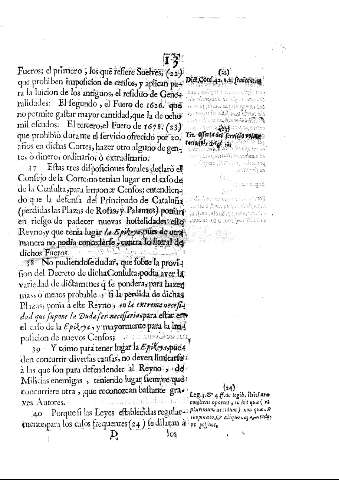 13
Fueros; el primero, los què refiere Suelves, (22)
que prohiben imposicion de censos, y aplican pa-
ra la luicion de los antiguos, el residuo de Gene-
ralidades: El segundo, el Fuero de 1626. que
no permite gastar mayor cantidad, que la de ocho
mil escudos: El tercero, el Fuero de 1678. (23)
que prohibiò durante el servicio ofrecido por 20.
años en dichas Cortes, hazer otro alguno de gen-
tes, ò dinero, ordinario, ò extraordinario.
37 Estas tres disposiciones forales declarò el
Consejo de la Corte no tenian lugar en el caso de
de la Consulta, para imponer Censos; entendien-
do que la defensa del Principado de Cataluña
(perdidas las Plazas de Rosas, y Palamos) ponia
en riesgo de padecer nuevas hostilidades este
Reyno, y que tenia lugar la Epikeya, pues de otra
manera no podia concederse, contra lo literal de
dichos Fueros.
38 No pudiendose dudar, que sobre la provi-
sion del Decreto de dicha Consulta podia aver la
variedad de dictamenes q̃ se pondera, para hazer
mas, o menos probable, si la perdida de dichas
Plazas, ponia à este Reyno, en la extrema necesi-
dad que supone la Duda ser necessario para estar en
el caso de la Epikeya, y mayormente para la im-
posicion de nuevos Censos;
39 Y como para tener lugar la Epikeya pue-
den concurrir diversas causas, no deven limitarse
à las que son para defenderse al Reyno, de
Milicias enemigas, teniendo lugar siempre que
concurriere otra, que reconozcan bastante gra-
ves Autores.
40 Porque si las Leyes establecidas regular-
mente para los casos frequentes (24) se dilataran à
D
los
(22)
(23)
(24)